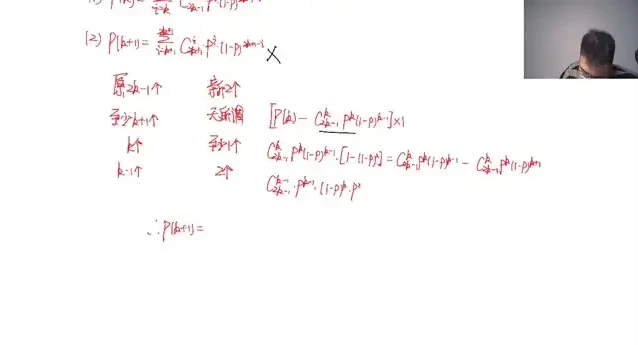 (2) P(k+1) = ∑ C_{2k+1}^{i} p^{i} (1-p)^{2k+1-i} ×
原2k-1个 新2个
至少k+1个 无所谓 [P(k) - C_{2k-1}^{k} p^{k}(1-p)^{k-1}]×1
k个 至少1个 C_{2k-1}^{k} p^{k}(1-p)^{k-1}·[1-(1-p)^{2}] = C_{2k-1}^{k} p^{k}(1-p)^{k-1} - C_{2k-1}^{k} p^{k}(1-p)^{k+1}
k-1个 2个 C_{2k-1}^{k-1}·p^{k-1}·(1-p)^{k}·p^{2}
∴P(k+1)=